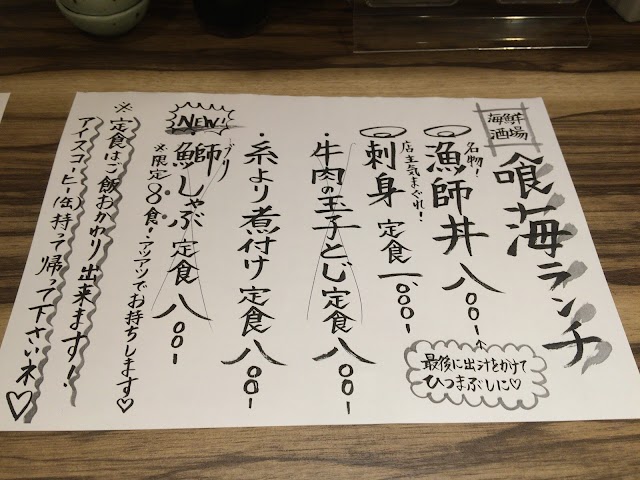 海鮮
酒場
喰海ランチ
名物!
漁師丼 八〇〇-
最後に出汁をかけて
ひつまぶしに♡
店主気まぐれ!
刺身 定食 一、〇〇〇-
・牛肉の玉子とじ定食 八〇〇-
・糸より煮付け定食 八〇〇-
NEW!
ぶり
・鰤しゃぶ定食 八〇〇-
※限定8食!アツアツでお持ちします♡
※定食はご飯おかわり出来ます!
アイスコーヒー(缶)持って帰って下さいネ♡